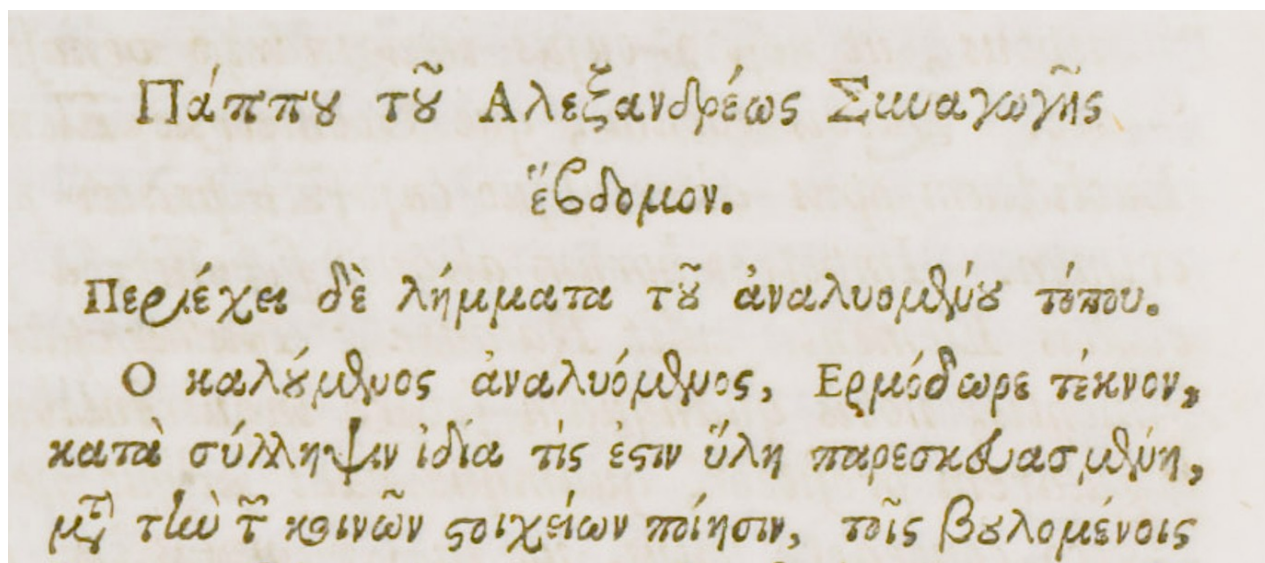 Πάππου τοῦ Αλεξανδρέως Συναγωγῆς
ἕβδομον.
Περιέχει δὲ λήμματα τοῦ ἀναλυομένου τόπου.
Ο καλούμενος ἀναλυόμενος, Ερμόδωρε τέκνον,
κατὰ σύλληψιν ἰδία τίς ἐστιν ὕλη παρεσκευασμένη,
μετὰ τὴν τῶν κοινῶν στοιχείων ποίησιν, τοῖς βουλομένοις